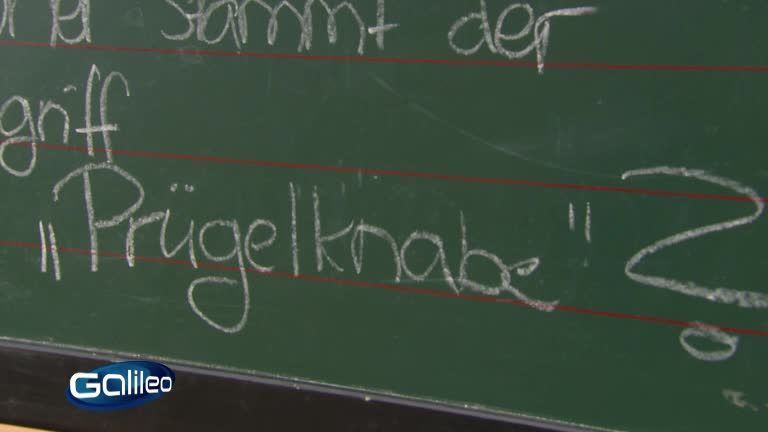 stammt der
griff
„Prügelknabe"?
Galileo